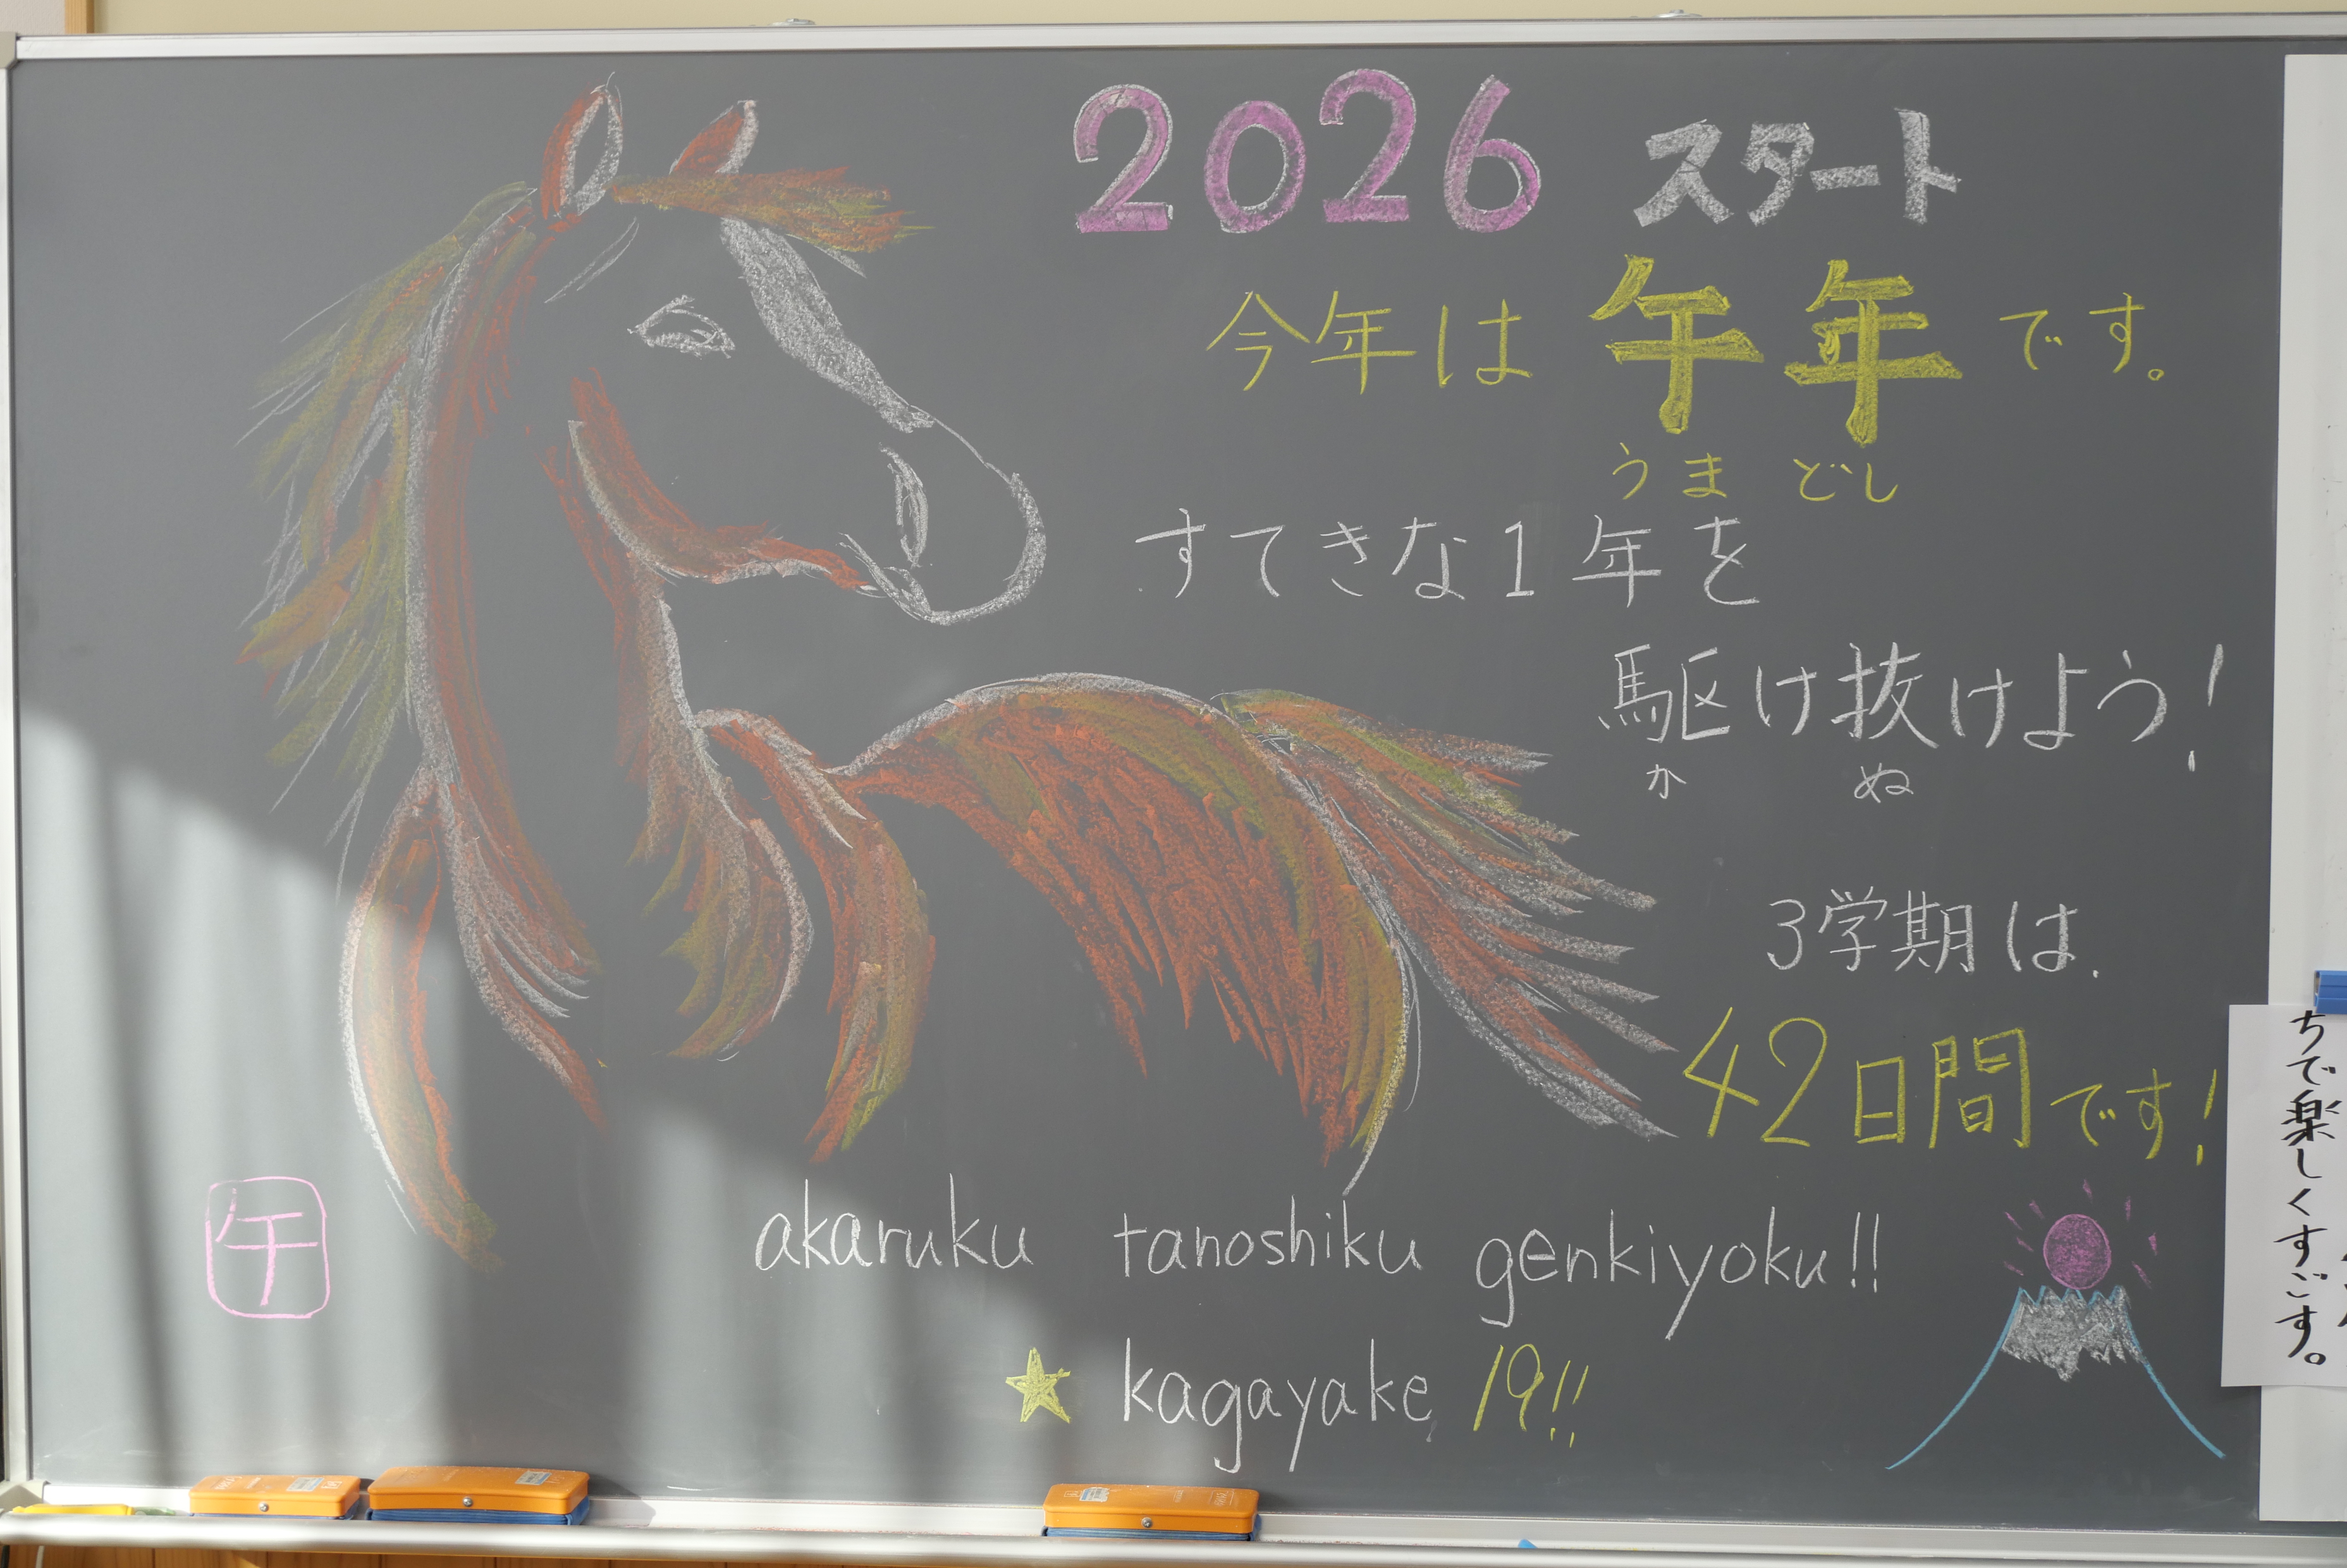 2026 スタート
今年は 午年 です。
うま どし
すてきな1年を
駆け抜けよう!
か ぬ
3学期は、
42日間です!
akaruku tanoshiku genkiyoku!!
kagayake 19!!
午
ちで楽しくすごす。